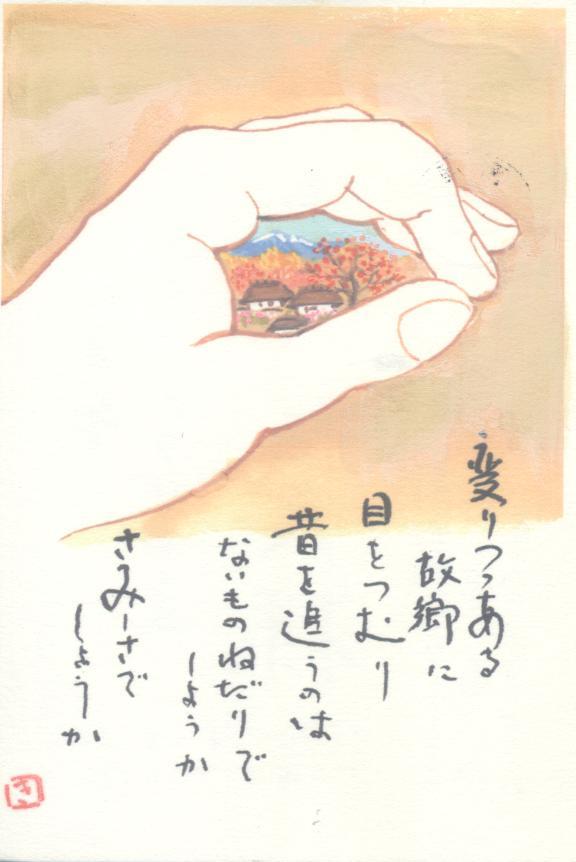 変りつつある
故郷に
目をつむり
昔を追うのは
ないものねだりで
しょうか
さみしさで
しょうか